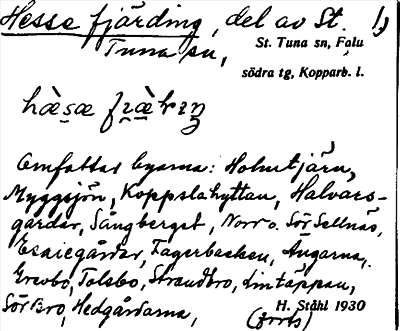 Hesse fjärding, del av St. 1)
Tuna sn,
St. Tuna sn, Falu
södra tg, Kopparb. l.
Omfattar byarna: Holmtjärn,
Myggsjön, Koppslahyttan, Halvars-
gårdar, Sångberget, Norr o. Sör Sellnäs,
Fagerbacken, Ängarna,
Tolsbo, Strandbro, Lintäppan,
Sör Bro, Hedgårdarna,
(forts)
H. Ståhl 1930